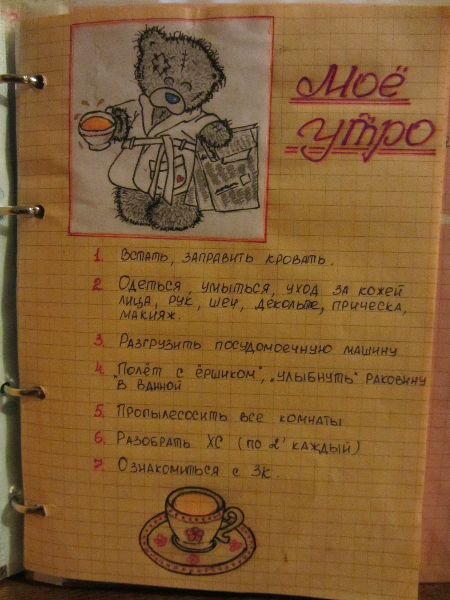 Моё
утро
1. Встать, заправить кровать.
2. Одеться, умыться, уход за кожей
лица, рук, шеи, декольте, прическа,
макияж.
3. Разгрузить посудомоечную машину
4. "Полёт с ёршиком", "улыбнуть" раковину
в ванной
5. Пропылесосить все комнаты
6. Разобрать ХС (по 2' каждый)
7. Ознакомиться с ЗК.